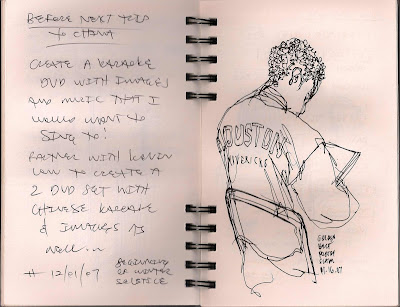 BEFORE NEXT TRIP
to CHINA
CREATE A KARAOKE
DVD WITH IMAGES
AND MUSIC THAT I
WOULD WANT to
SING to!
PARTNER WITH KEVIN
LOW to CREATE A
2 DVD SET WITH
CHINESE KARAOKE
& IMAGES AS
WELL...
# 12/01/07
BEGINNING
OF WINTER
SOLSTICE
HOUSTON
MAVERICKS
GOLDEN
WEST